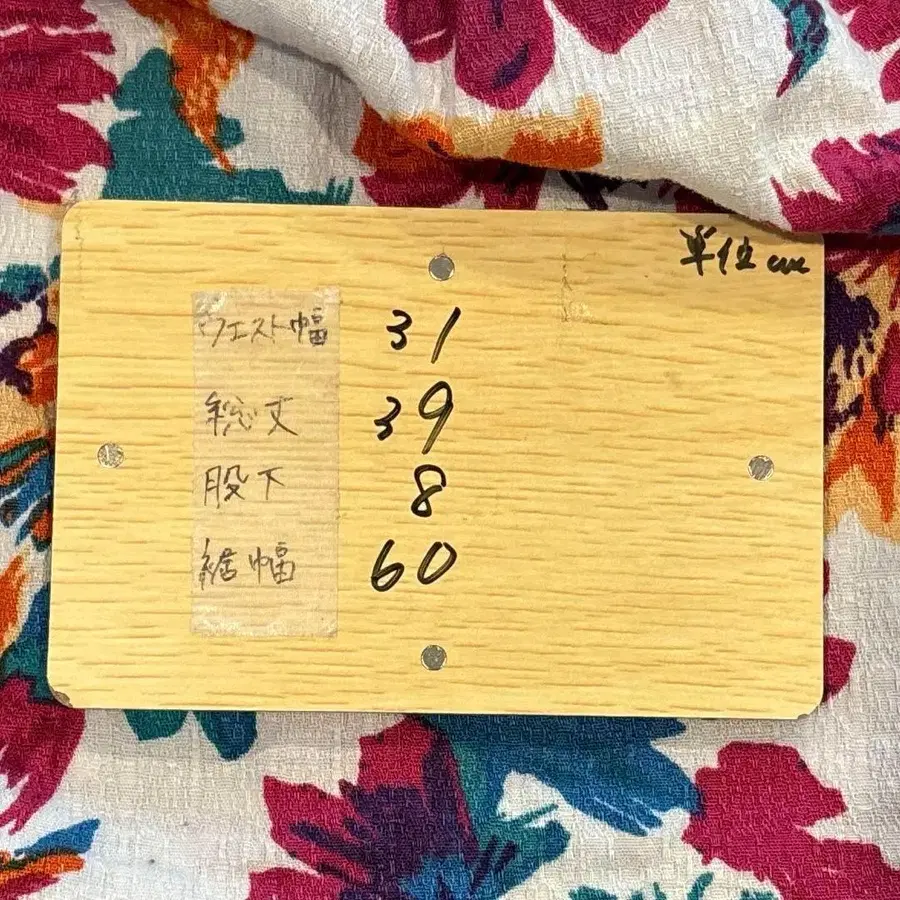 単位cm
ウエスト幅 31
総丈 39
股下 8
裾幅 60